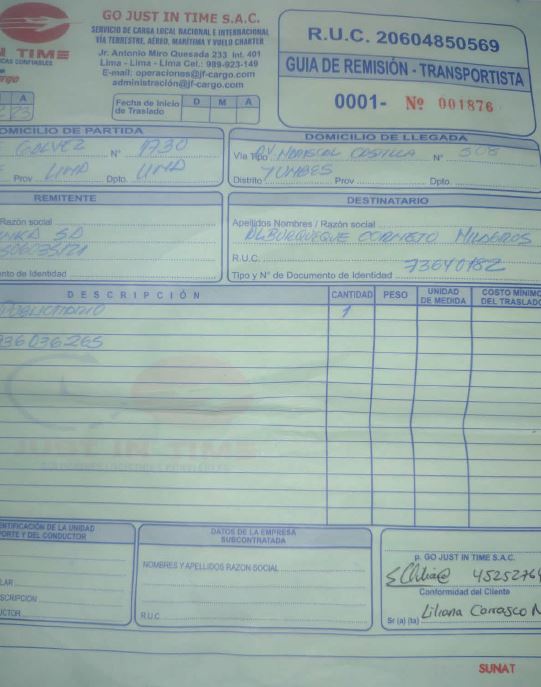 GO JUST IN TIME S.A.C.
SERVICIO DE CARGA LOCAL NACIONAL E INTERNACIONAL
VÍA TERRESTRE, AÉREO, MARÍTIMA Y VUELO CHARTER
Jr. Antonio Miro Quesada 233 Int. 401
Lima - Lima - Lima Cel.: 989-923-149
E-mail: operaciones@jf-cargo.com
administración@jf-cargo.com
N TIME
Fecha de Inicio de Traslado D M A
A
R.U.C. 20604850569
GUIA DE REMISIÓN - TRANSPORTISTA
0001- Nº 001876
OMICILIO DE PARTIDA
GALVEZ N° 1730
Prov LIMA Dpto. LIMA
DOMICILIO DE LLEGADA
Vía Tipo AV MARISCAL CASTILLA N° 508
Distrito TUMBES Prov Dpto.
REMITENTE
Razón social
SA
nto de Identidad
DESTINATARIO
Apellidos Nombres / Razón social
ALBURQUEQUE CORNEJO MILAGROS
R.U.C.
Tipo y N° de Documento de Identidad 73640182
DESCRIPCIÓN CANTIDAD PESO UNIDAD DE MEDIDA COSTO MÍNIMO DEL TRASLADO
PUBLICITARIO 1
936036265
JUST IN TIME
ENTIFICACIÓN DE LA UNIDAD
PORTE Y DEL CONDUCTOR
LAR
SCRIPCION
UCTOR
DATOS DE LA EMPRESA SUBCONTRATADA
NOMBRES Y APELLIDOS RAZON SOCIAL
R.U.C
p. GO JUST IN TIME S.A.C.
4525276
Conformidad del Cliente
Sr (a) (ta) Liliana Carrasco N
SUNAT